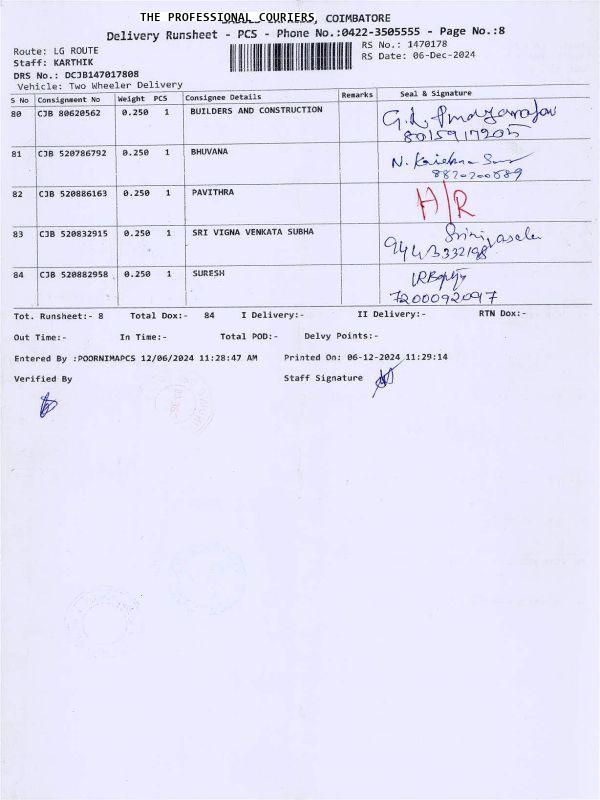 THE PROFESSIONAL COURIERS, COIMBATORE
Delivery Runsheet - PCS - Phone No.:0422-3505555 - Page No.:8
Route: LG ROUTE
RS No.: 1470178
Staff: KARTHIK
RS Date: 06-Dec-2024
DRS No.: DCJB147017808
Vehicle: Two Wheeler Delivery
S No Consignment No Weight PCS Consignee Details Remarks Seal & Signature
80 CJB 80620562 0.250 1 BUILDERS AND CONSTRUCTION
8015917205
81 CJB 520786792 0.250 1 BHUVANA N. Krishna
8820200689
82 CJB 520886163 0.250 1 PAVITHRA H/R
83 CJB 520832915 0.250 1 SRI VIGNA VENKATA SUBHA
9443332198
84 CJB 520882958 0.250 1 SURESH
7200092097
Tot. Runsheet:- 8 Total Dox:- 84 I Delivery:- II Delivery:- RTN Dox:-
Out Time:- In Time:- Total POD:- Delvy Points:-
Entered By :POORNIMAPCS 12/06/2024 11:28:47 AM Printed On: 06-12-2024 11:29:14
Verified By Staff Signature